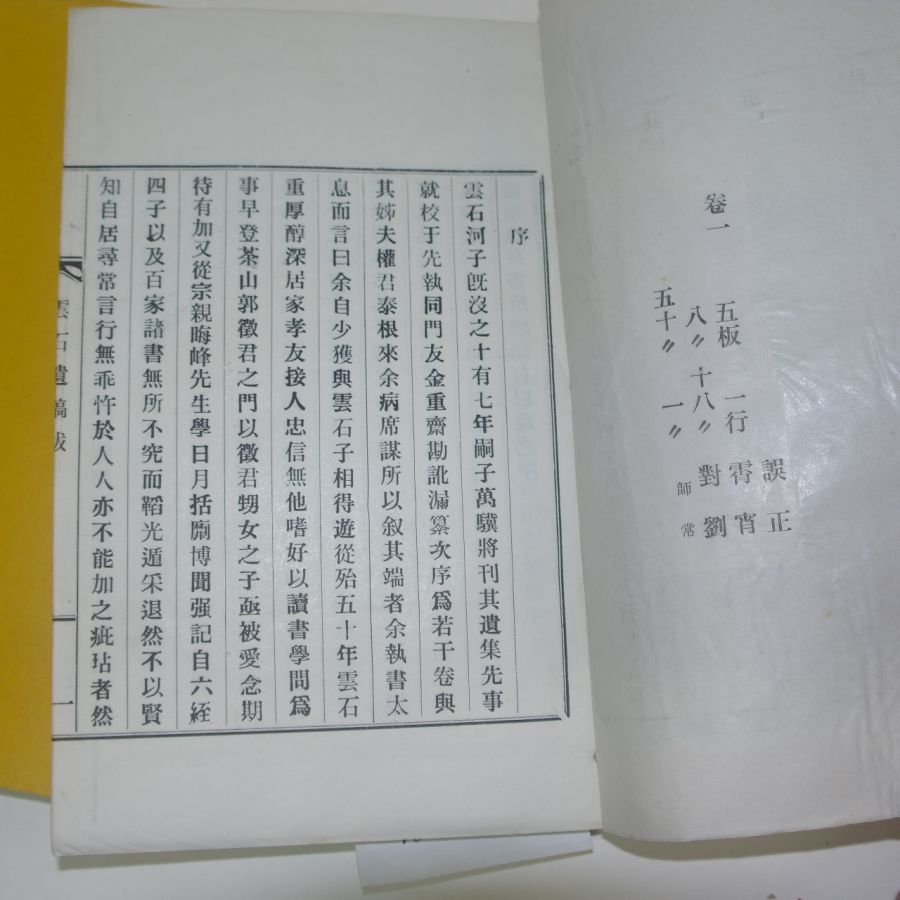 卷一 五板 一行 誤 正
八〃 十八〃 霄 宵
五十〃 一〃 對 劉
師 常
序
雲石河子旣沒之十有七年嗣子萬驥將刊其遺集先事
就校于先執同門友金重齋勘訛漏纂次序爲若干卷與
其姊夫權君泰根來余病席謀所以叙其端者余執書太
息而言曰余自少獲與雲石子相得遊從殆五十年雲石
重厚醇深居家孝友接人忠信無他嗜好以讀書學問爲
事早登茶山郭徵君之門以徵君甥女之子亟被愛念期
待有加又從宗親晦峰先生學日月括劘博聞强記自六經
四子以及百家諸書無所不究而韜光遁采退然不以賢
知自居尋常言行無乖忤於人人亦不能加之疵玷者然
雲石遺稿 一